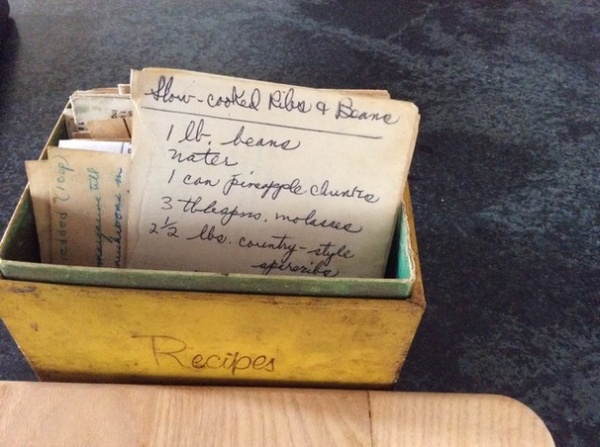 Slow-cooked Ribs & Beans
1 lb. beans
water
1 can pineapple chunks
3 tblespns. molasses
2½ lbs. country-style
spareribs
added (1 cup)
margarine till
mushrooms in
Recipes